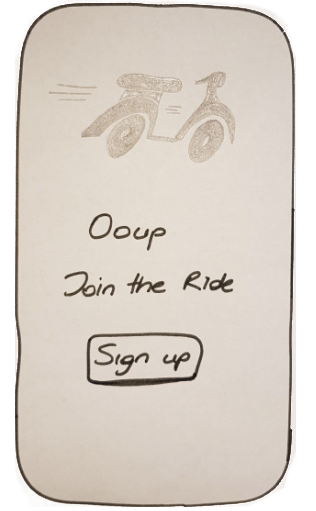 Ooup
Join the Ride
Sign up